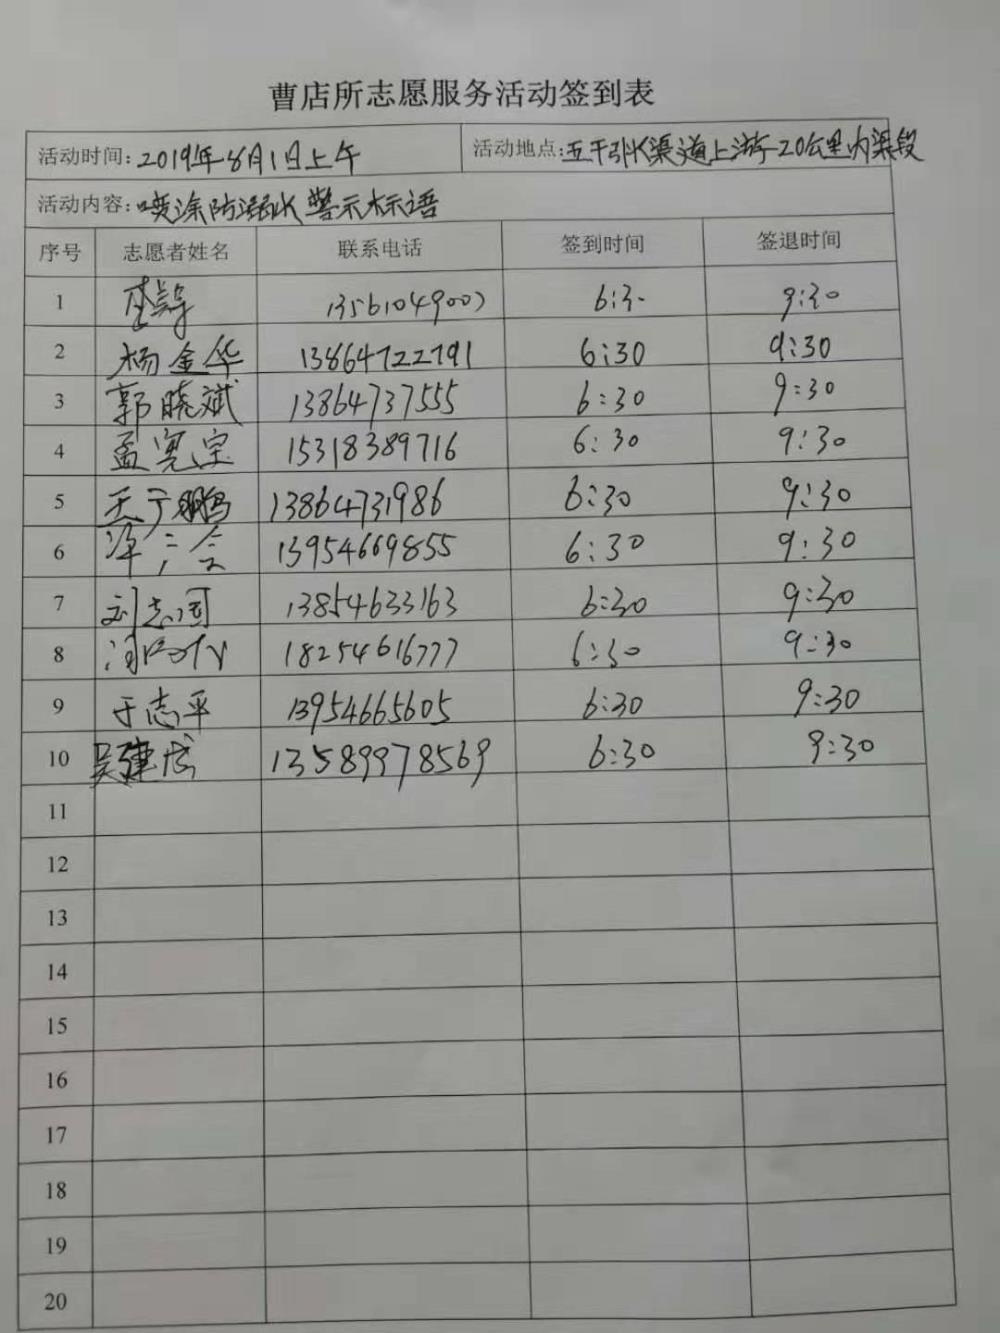 曹店所志愿服务活动签到表
活动时间:2019年8月1日上午 活动地点:五干引水渠道上游20公里内渠段
活动内容:喷涂防溺水警示标语
序号 志愿者姓名 联系电话 签到时间 签退时间
1 13561049007 6:30 9:30
2 杨金华 13864722791 6:30 9:30
3 郭晓斌 13864737555 6:30 9:30
4 孟宪宝 15318389716 6:30 9:30
5 王宁鹏 13864731986 6:30 9:30
6 13954669855 6:30 9:30
7 刘志国 13854633163 6:30 9:30
8 18254616777 6:30 9:30
9 于志平 13954665605 6:30 9:30
10 吴建成 13589978569 6:30 9:30
11
12
13
14
15
16
17
18
19
20